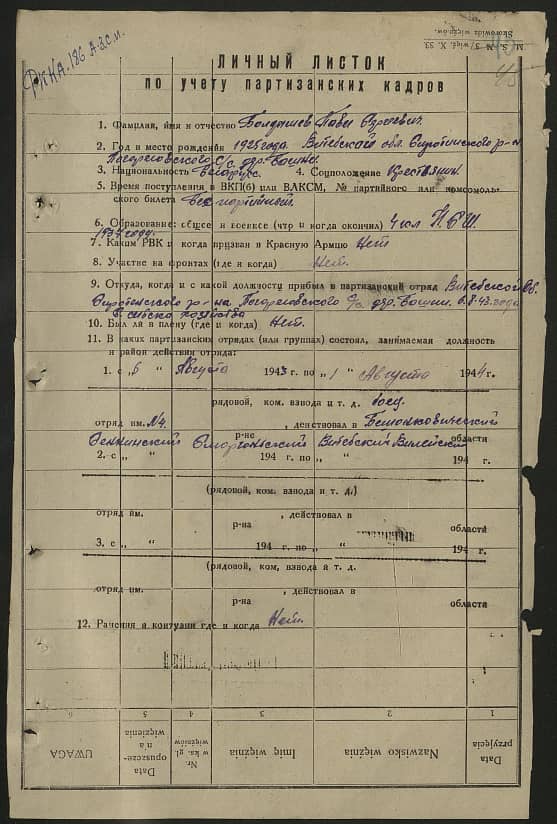 M. S. № 37/więź. X. 53.
Skorowidz więźniów.
45
РКНА. 186 А.З.С.М.
ЛИЧНЫЙ ЛИСТОК
по учету партизанских кадров
1. Фамилия, имя и отчество Болдышев Павел
2. Год и место рождения 1925 года. Витебской обл. Сиротинского р-на
с/с. дер.
3. Национальность Беларус. 4. Соцположение Крестьянин.
5. Время поступления в ВКП(б) или ВЛКСМ, № партийного или комсомоль-
ского билета Безпартийный.
6. Образование: общее и военное (что и когда окончил) 4 кл Н.Б.Ш.
1937 году.
7. Каким РВК и когда призван в Красную Армию Нет
8. Участие на фронтах (где и когда) Нет.
9. Откуда, когда и с какой должности прибыл в партизанский отряд Витебской об.
Сиротинского р-на с/с. дер. 6.8.43 года
хозяйства
10. Был ли в плену (где и когда) Нет.
11. В каких партизанских отрядах (или группах) состоял, занимаемая должность
и район действия отряда:
1. с „6 “ Августа 1943 г. по „1 “ Августа 1944 г.
рядовой, ком. взвода и т. д. боец.
отряд им. №4. , действовал в Бешонковический
Сенненский Сморгоньский р-не Витебский Вилейский области
2. с „ “ 194 г. по „ “ 194 г.
(рядовой, ком. взвода и т. д.)
отряд им. , действовал в
р-на области
3. с „ “ 194 г. по „ “ 194 г.
(рядовой, ком. взвода и т. д.
отряд им. , действовал в
р-на области
12. Ранения и контузии где и когда Нет.
6 5 4 3 2 1
UWAGA Data opuszczenia więzienia Nr. w ks. gł. więźniów Imię więźnia Nazwisko więźnia Data przyjęcia